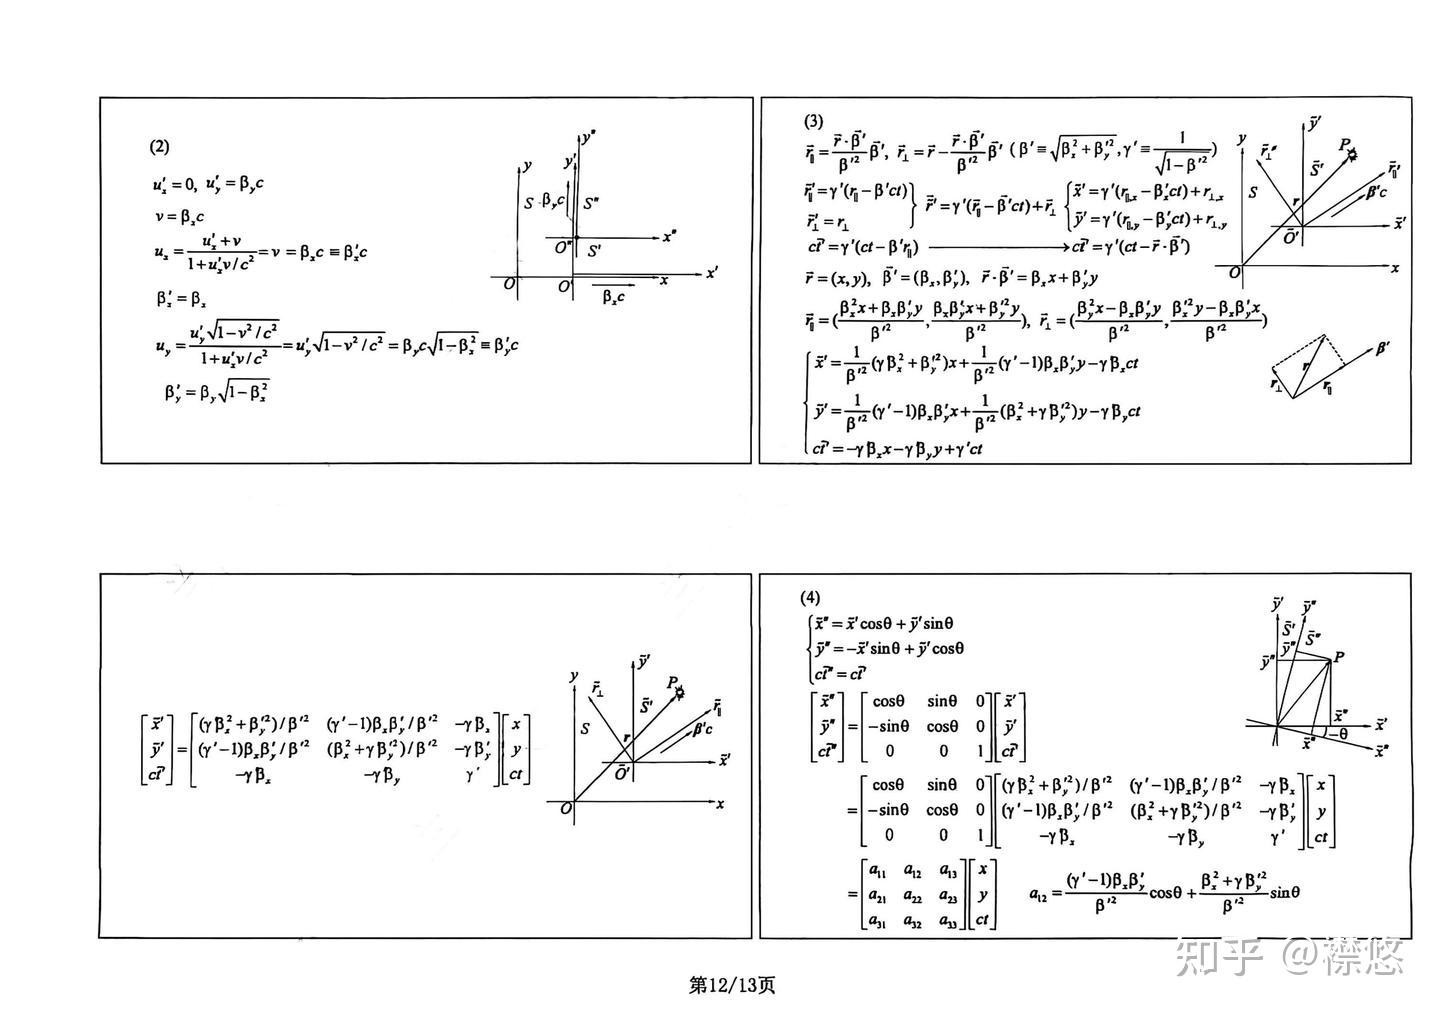 (2)
u'ₓ = 0, u'_y = β_y c
v = βₓc
uₓ = (u'ₓ + v)/(1 + u'ₓv/c²) = v = βₓc ≡ β'ₓc
β'ₓ = βₓ
u_y = u'_y√(1 − v²/c²)/(1 + u'ₓv/c²) = u'_y√(1 − v²/c²) = β_y c√(1 − βₓ²) ≡ β'_y c
β'_y = β_y√(1 − βₓ²)
y y' y″
S β_y c S″
O″ x″
S'
O O' x x'
βₓc
(3)
r⃗∥ = (r⃗·β⃗'/β'²)β⃗', r⃗⊥ = r⃗ − (r⃗·β⃗'/β'²)β⃗' (β' ≡ √(βₓ² + β'_y²), γ' ≡ 1/√(1 − β'²))
r⃗∥' = γ'(r∥ − β'ct)
r⃗⊥' = r⊥
} r⃗' = γ'(r⃗∥ − β⃗'ct) + r⃗⊥ { x̃' = γ'(r∥,ₓ − β'ₓct) + r⊥,ₓ
ỹ' = γ'(r∥,y − β'_y ct) + r⊥,y
ct̃' = γ'(ct − β'r∥) → ct̃' = γ'(ct − r⃗·β⃗')
r⃗ = (x, y), β⃗' = (βₓ, β'_y), r⃗·β⃗' = βₓx + β'_y y
r⃗∥ = ((βₓ²x + βₓβ'_y y)/β'², (βₓβ'_y x + β'_y²y)/β'²), r⃗⊥ = ((β_y²x − βₓβ'_y y)/β'², (βₓ'²y − βₓβ'_y x)/β'²)
x̃' = (1/β'²)(γβₓ² + β'_y²)x + (1/β'²)(γ' − 1)βₓβ'_y y − γβₓct
ỹ' = (1/β'²)(γ' − 1)βₓβ'_y x + (1/β'²)(βₓ² + γβ'_y²)y − γβ_y ct
ct̃' = −γβₓx − γβ_y y + γ'ct
y r̃⊥″ ỹ' P
S S̃' r̃∥' β'c
r Õ' x̃'
O x
r⊥ r r∥ β'
[x̃' ỹ' ct̃'] = [(γβₓ² + β'_y²)/β'² (γ' − 1)βₓβ'_y/β'² −γβₓ
(γ' − 1)βₓβ'_y/β'² (βₓ² + γβ'_y²)/β'² −γβ'_y
−γβₓ −γβ_y γ'] [x y ct]
y r̃⊥ ỹ' P
S S̃' r̃∥ β'c
r Õ' x̃'
O x
(4)
x̃″ = x̃'cosθ + ỹ'sinθ
ỹ″ = −x̃'sinθ + ỹ'cosθ
ct̃″ = ct̃'
[x̃″ ỹ″ ct̃″] = [cosθ sinθ 0
−sinθ cosθ 0
0 0 1] [x̃' ỹ' ct̃']
= [cosθ sinθ 0
−sinθ cosθ 0
0 0 1] [(γβₓ² + β'_y²)/β'² (γ' − 1)βₓβ'_y/β'² −γβₓ
(γ' − 1)βₓβ'_y/β'² (βₓ² + γβ'_y²)/β'² −γβ'_y
−γβₓ −γβ_y γ'] [x y ct]
= [a₁₁ a₁₂ a₁₃
a₂₁ a₂₂ a₂₃
a₃₁ a₃₂ a₃₃] [x y ct] a₁₂ = ((γ' − 1)βₓβ'_y/β'²)cosθ + ((βₓ² + γβ'_y²)/β'²)sinθ
ỹ' ỹ″
S̃' S̃″
ỹ″ ỹ″ P
x̃″ x̃'
x̃″ −θ x̃″
知乎 @襟悠
第12/13页